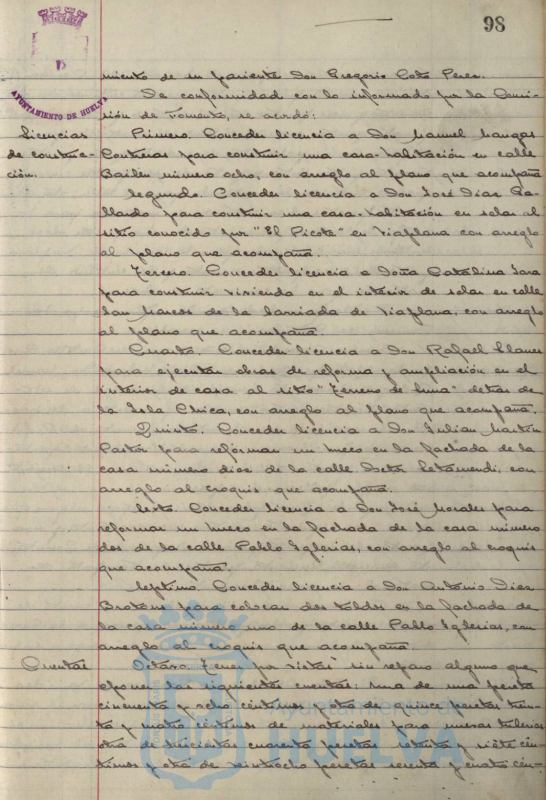 98
AYUNTAMIENTO DE HUELVA
miento de su pariente Don Gregorio Coto Perez.
De conformidad con lo informado por la Comi-
sión de Fomento, se acordó:
Licencias de construc-ción.
Primero. Conceder licencia a Don Manuel Mangas
Contreras para construir una casa-habitación en calle
Bailén número ocho, con arreglo al plano que acompaña
Segundo. Conceder licencia a Don José Diaz Ga-
llardo para construir una casa-habitación en solar al
sitio conocido por "El Picote" en Viaplana con arreglo
al plano que acompaña.
Tercero. Conceder licencia a Doña Catalina Jara
para construir vivienda en el interior de solar en calle
San Marcos de la barriada de Viaplana, con arreglo
al plano que acompaña.
Cuarto. Conceder licencia a Don Rafael Llanes
para ejecutar obras de reforma y ampliación en el
interior de casa al sitio "Terreno de" detras de
la Isla Chica, con arreglo al plano que acompaña.
Quinto. Conceder licencia a Don Julian Martín
Pastor para reformar un hueco en la fachada de la
casa número doce de la calle Letamendi, con
arreglo al croquis que acompaña.
Sexto. Conceder licencia a Don José Morales para
reformar un hueco en la fachada de la casa número
dos de la calle Pablo Iglesias, con arreglo al croquis
que acompaña.
Septimo. Conceder licencia a Don Antonio Diaz
para colocar dos toldos en la fachada de
la casa número uno de la calle Pablo Iglesias, con
arreglo al croquis que acompaña.
Cuentas
Octavo. Tener por vistas sin reparo alguno que
oponer las siguientes cuentas: una de una peseta
cincuenta y ocho céntimos y otra de quince pesetas trein-
ta y cuatro céntimos de materiales para nuevas tuberias
otra de trescientas cuarenta pesetas setenta y siete cén-
timos y otra de veintiocho pesetas sesenta y cuatro cén-
Ayuntamiento de
HUELVA